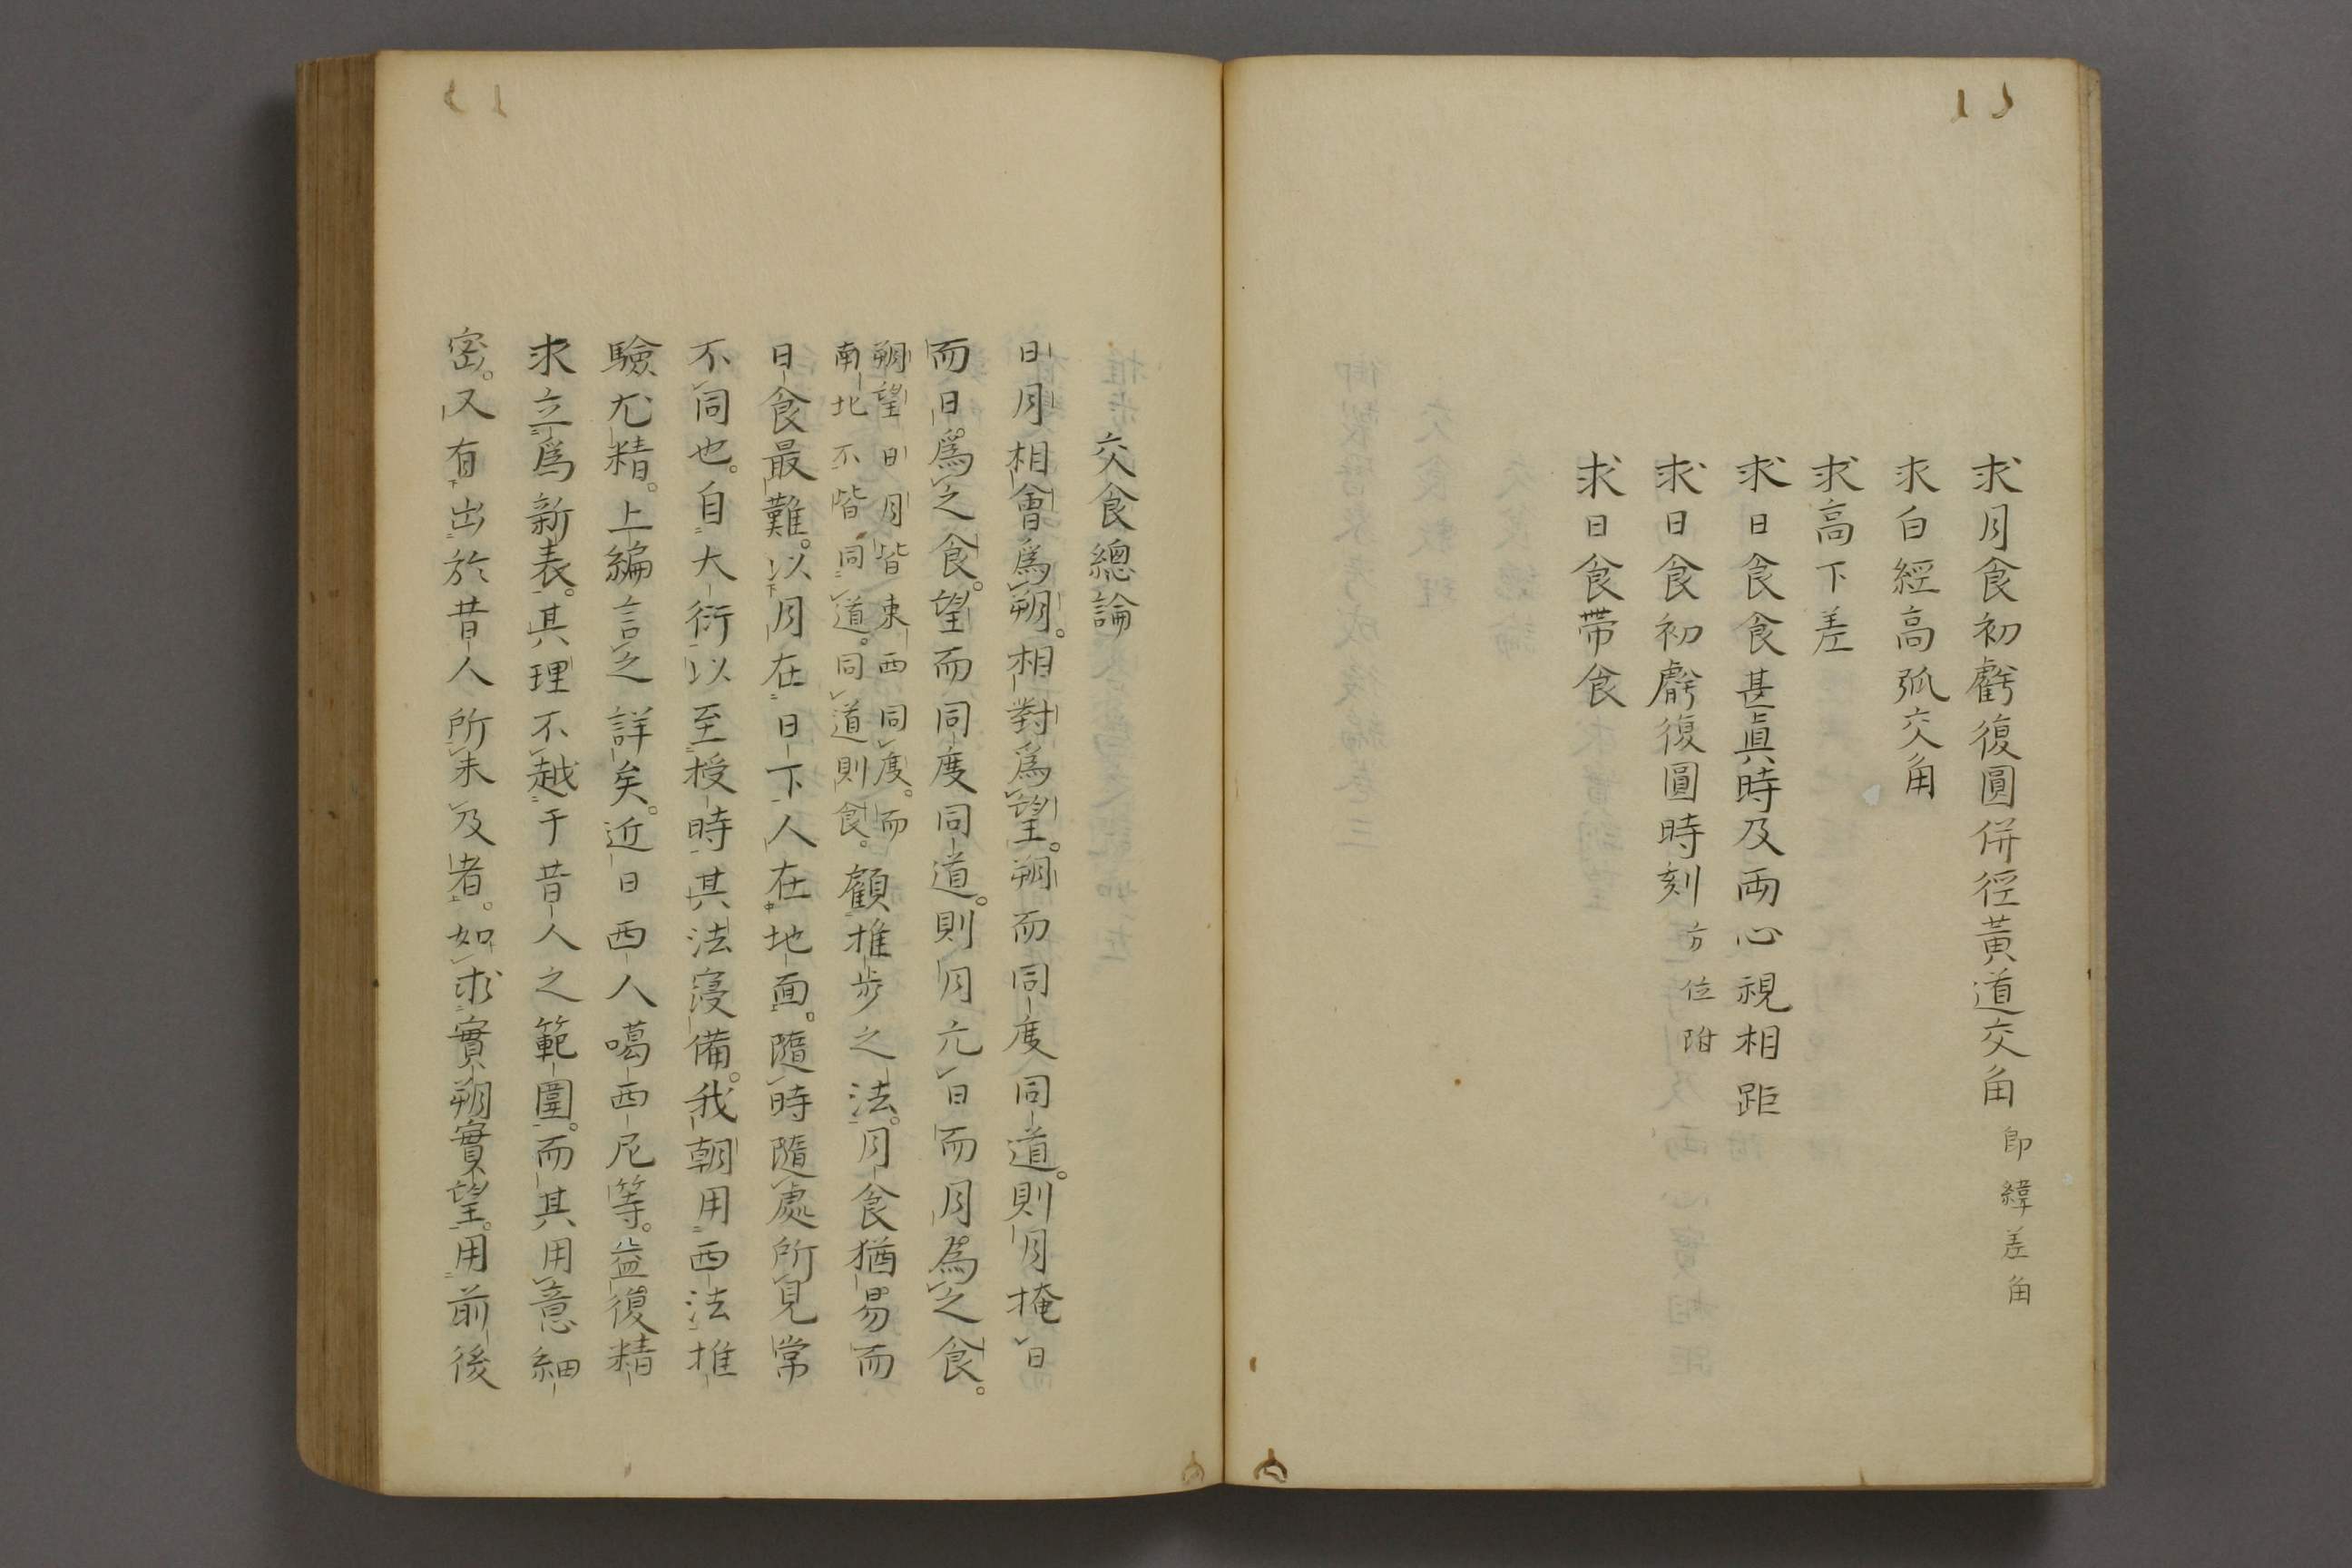 求月食初虧復圓併徑黃道交角即緯差角
求白經高弧交角
求高下差
求日食食甚眞時及兩心視相距
求日食初虧復圓時刻方位附
求日食帶食
交食總論
日月相會爲朔。相對爲望。朔而同度同道。則月掩日
而日爲之食。望而同度同道。則月亢日而月爲之食。
朔望日月皆東西同度。而
南北不皆同道。同道則食。
顧推步之法。月食猶易而
日食最難。以月在日下人在地面。隨時隨處所見常
不同也。自大衍以至授時其法寖備。我朝用西法推
驗尤精。上編言之詳矣。近日西人噶西尼等。益復精
求立爲新表。其理不越于昔人之範圍。而其用意細
密。又有出於昔人所未及者。如求實朔實望。用前後